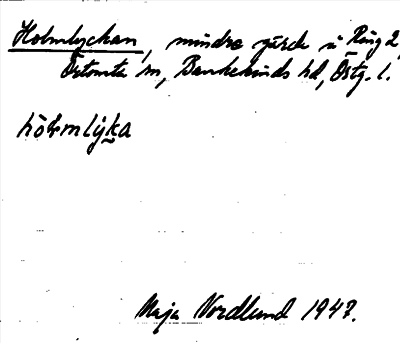 Holmlyckan, mindre gärde i Ring 2,
Örtomta sn, Bankekinds hd, Östg. l.
hòlmlýka
Maja Nordlund 1947.